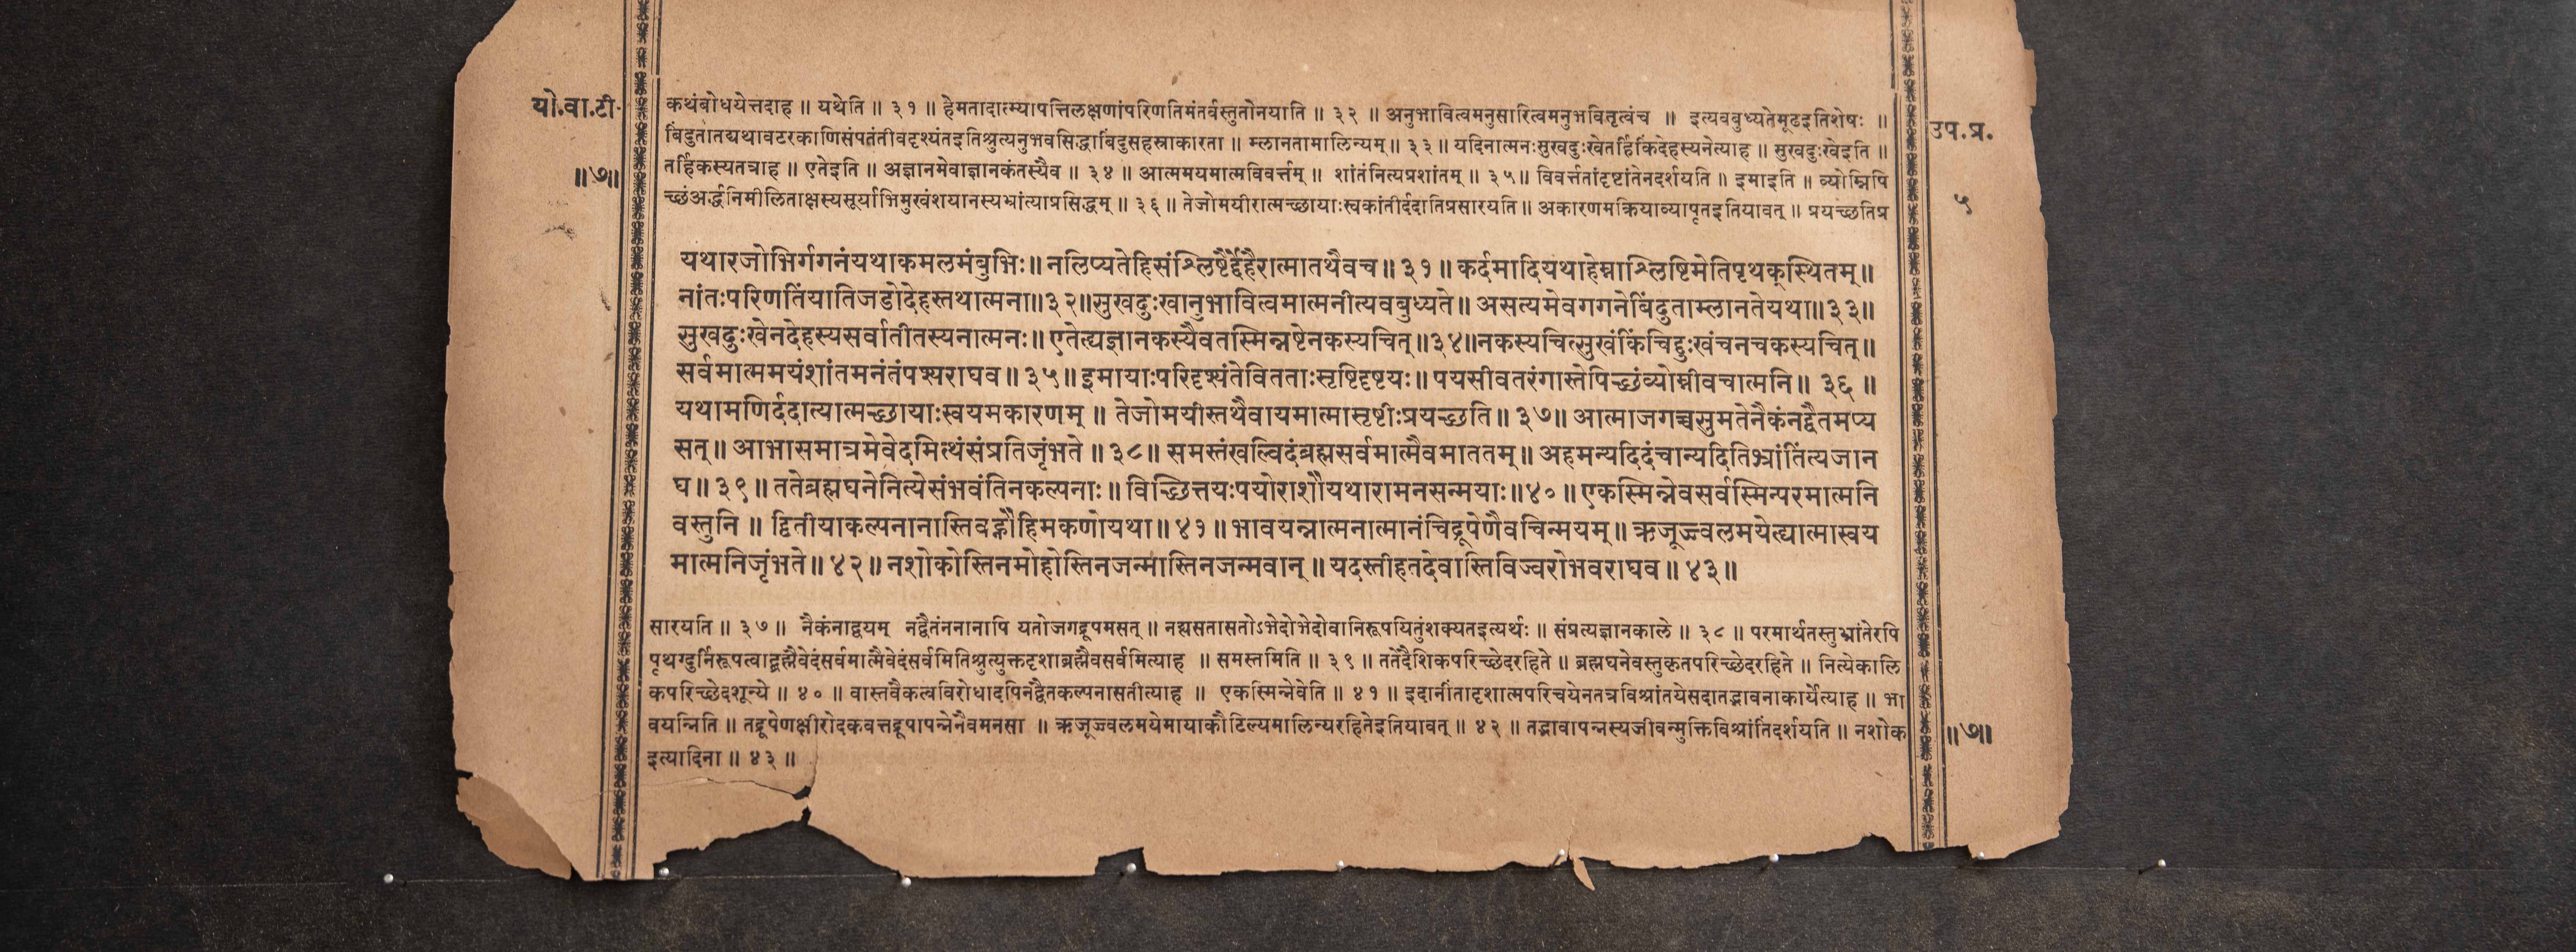 यो.वा.टी.
॥७॥
कथंबोधयेत्तदाह ॥ यथेति ॥ ३१ ॥ हेमतादात्म्यापत्तिलक्षणांपरिणतिमंतर्वस्तुतोनयाति ॥ ३२ ॥ अनुभावित्वमनुसारित्वमनुभवितृत्वंच ॥ इत्यवबुध्यतेमूढइतिशेषः ॥
बिंदुतातद्यथावटरकाणिसंपतंतीवदृश्यंतइतिश्रुत्यनुभवसिद्धाबिंदुसहस्राकारता ॥ म्लानतामालिन्यम् ॥ ३३ ॥ यदिनात्मनःसुखदुःखेतर्हिकिंदेहस्यनेत्याह ॥ सुखदुःखेइति ॥
तर्हिकस्यतत्राह ॥ एतेइति ॥ अज्ञानमेवाज्ञानकंतस्यैव ॥ ३४ ॥ आत्ममयमात्मविवर्त्तम् ॥ शांतंनित्यप्रशांतम् ॥ ३५ ॥ विवर्त्ततांदृष्टांतेनदर्शयति ॥ इमाइति ॥ व्योम्निपि
च्छंअर्द्धनिमीलिताक्षस्यसूर्याभिमुखंशयानस्यभ्रांत्याप्रसिद्धम् ॥ ३६ ॥ तेजोमयीरात्मच्छायाःस्वकांतीर्ददातिप्रसारयति ॥ अकारणमक्रियाव्यापृतइतियावत् ॥ प्रयच्छतिप्र
यथारजोभिर्गगनंयथाकमलमंबुभिः ॥ नलिप्यतेहिसंश्लिष्टैर्देहैरात्मातथैवच ॥ ३१ ॥ कर्दमादियथाहेम्नाश्लिष्टिमेतिपृथक्स्थितम् ॥
नांतःपरिणतिंयातिजडोदेहस्तथात्मना ॥ ३२ ॥ सुखदुःखानुभावित्वमात्मनीत्यवबुध्यते ॥ असत्यमेवगगनेबिंदुताम्लानतेयथा ॥ ३३ ॥
सुखदुःखेनदेहस्यसर्वातीतस्यनात्मनः ॥ एतेत्यज्ञानकस्यैवतस्मिन्नष्टेनकस्यचित् ॥ ३४ ॥ नकस्यचित्सुखंकिंचिद्दुःखंचनचकस्यचित् ॥
सर्वमात्ममयंशांतमनंतंपश्यराघव ॥ ३५ ॥ इमायाःपरिदृश्यंतेवितताःसृष्टिदृष्टयः ॥ पयसीवतरंगास्तेपिच्छंव्योम्नीवचात्मनि ॥ ३६ ॥
यथामणिर्ददात्यात्मच्छायाःस्वयमकारणम् ॥ तेजोमयीस्तथैवायमात्मासृष्टीःप्रयच्छति ॥ ३७ ॥ आत्माजगच्चसुमतेनैकंनद्वैतमप्य
सत् ॥ आभासमात्रमेवेदमित्थंसंप्रतिजृंभते ॥ ३८ ॥ समस्तंखल्विदंब्रह्मसर्वमात्मैवमाततम् ॥ अहमन्यदिदंचान्यदितिभ्रांतिंत्यजान
घ ॥ ३९ ॥ ततेब्रह्मघनेनित्येसंभवंतिनकल्पनाः ॥ विच्छित्तयःपयोराशौयथारामनसन्मयाः ॥ ४० ॥ एकस्मिन्नेवसर्वस्मिन्परमात्मनि
वस्तुनि ॥ द्वितीयाकल्पनानास्तिवह्नौहिमकणोयथा ॥ ४१ ॥ भावयन्नात्मनात्मानंचिद्रूपेणैवचिन्मयम् ॥ ऋजूज्ज्वलमयेत्यात्मास्वय
मात्मनिजृंभते ॥ ४२ ॥ नशोकोस्तिनमोहोस्तिनजन्मास्तिनजन्मवान् ॥ यदस्तीहतदेवास्तिविज्वरोभवराघव ॥ ४३ ॥
सारयति ॥ ३७ ॥ नैकंनाद्वयम् नद्वैतंननानापि यतोजगद्रूपमसत् ॥ नह्यसतासतोऽभेदोभेदोवानिरूपयितुंशक्यतइत्यर्थः ॥ संप्रत्यज्ञानकाले ॥ ३८ ॥ परमार्थतस्तुभ्रांतेरपि
पृथग्दुर्निरूपत्वाद्ब्रह्मैवेदंसर्वमात्मैवेदंसर्वमितिश्रुत्युक्तदृशाब्रह्मैवसर्वमित्याह ॥ समस्तमिति ॥ ३९ ॥ ततेदैशिकपरिच्छेदरहिते ॥ ब्रह्मघनेवस्तुकृतपरिच्छेदरहिते ॥ नित्येकालि
कपरिच्छेदशून्ये ॥ ४० ॥ वास्तवैकत्वविरोधादपिनद्वैतकल्पनासतीत्याह ॥ एकस्मिन्नेवेति ॥ ४१ ॥ इदानींतादृशात्मपरिचयेनतत्रविश्रांतयेसदातद्भावनाकार्येत्याह ॥ भा
वयन्निति ॥ तद्रूपेणक्षीरोदकवत्तद्रूपापन्नेनैवमनसा ॥ ऋजूज्ज्वलमयेमायाकौटिल्यमालिन्यरहितेइतियावत् ॥ ४२ ॥ तद्भावापन्नस्यजीवन्मुक्तिविश्रांतिंदर्शयति ॥ नशोक
इत्यादिना ॥ ४३ ॥
उप.प्र.
५
॥७॥